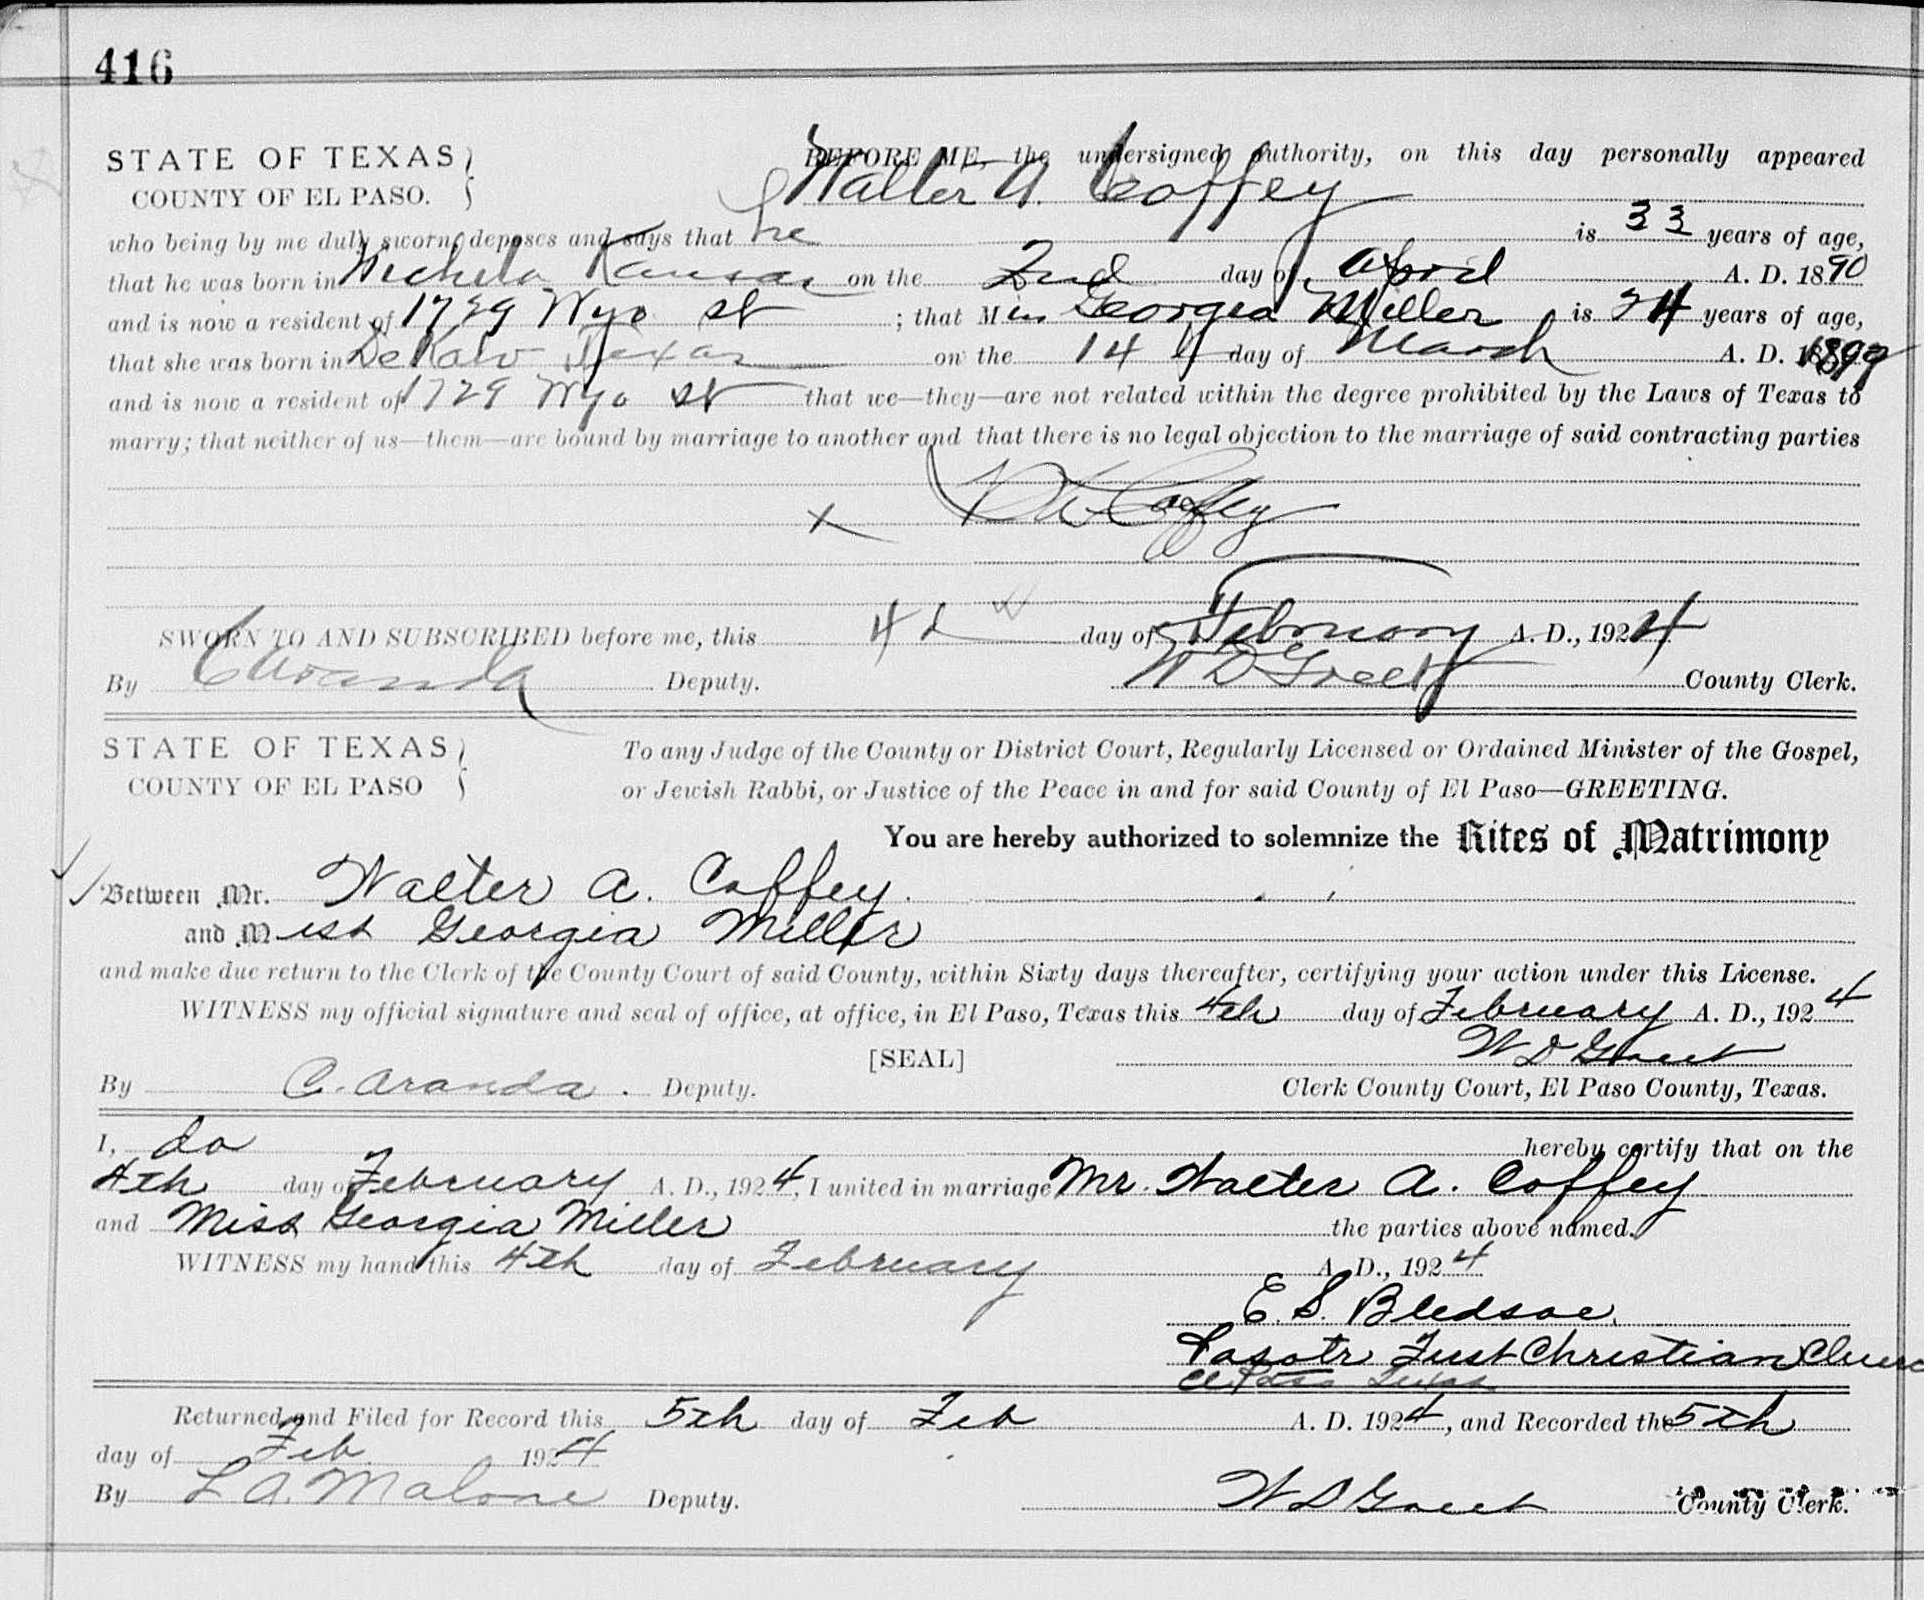 416
STATE OF TEXAS
COUNTY OF EL PASO.
BEFORE ME, the undersigned authority, on this day personally appeared
Walter A. Coffey
who being by me duly sworn, deposes and says that he is 33 years of age,
that he was born in Wichita Kansas on the 2nd day of April A. D. 1890
and is now a resident of 1729 Wyo St ; that Miss Georgia Miller is 24 years of age,
that she was born in DeKalb Texas on the 14th day of March A. D. 1899
and is now a resident of 1729 Wyo St that we—they—are not related within the degree prohibited by the Laws of Texas to
marry; that neither of us—them—are bound by marriage to another and that there is no legal objection to the marriage of said contracting parties
x W A Coffey
SWORN TO AND SUBSCRIBED before me, this 4th day of February A. D., 1924
By C Aranda Deputy. W D Greet County Clerk.
STATE OF TEXAS
COUNTY OF EL PASO
To any Judge of the County or District Court, Regularly Licensed or Ordained Minister of the Gospel,
or Jewish Rabbi, or Justice of the Peace in and for said County of El Paso—GREETING.
You are hereby authorized to solemnize the Rites of Matrimony
Between Mr. Walter A. Coffey.
and Miss Georgia Miller
and make due return to the Clerk of the County Court of said County, within Sixty days thereafter, certifying your action under this License.
WITNESS my official signature and seal of office, at office, in El Paso, Texas this 4th day of February A. D., 1924
[SEAL] W D Greet
By C. Aranda. Deputy. Clerk County Court, El Paso County, Texas.
I, do hereby certify that on the
4th day of February A. D., 1924, I united in marriage Mr. Walter A. Coffey
and Miss Georgia Miller the parties above named.
WITNESS my hand this 4th day of February A. D., 1924
E. S. Bledsoe.
Pasotr First Christian Church
El Paso Texas
Returned and Filed for Record this 5th day of Feb A. D. 1924, and Recorded the 5th
day of Feb 1924
By L A. Malone Deputy. W D Greet County Clerk.